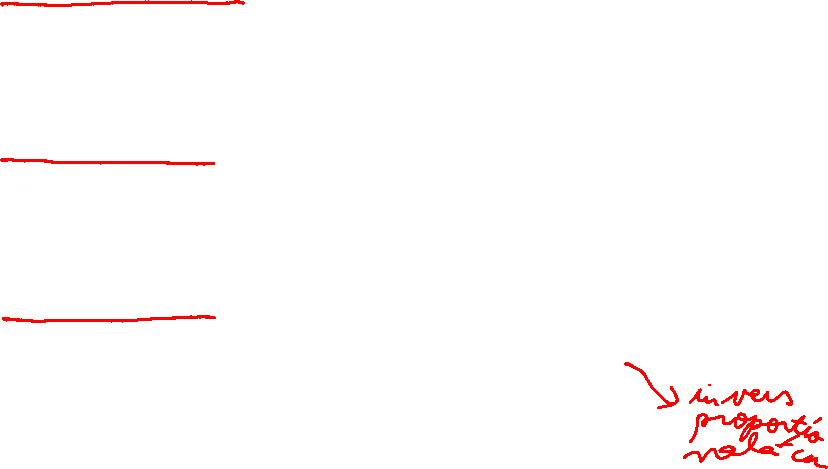 invers
proporțio
nală cu